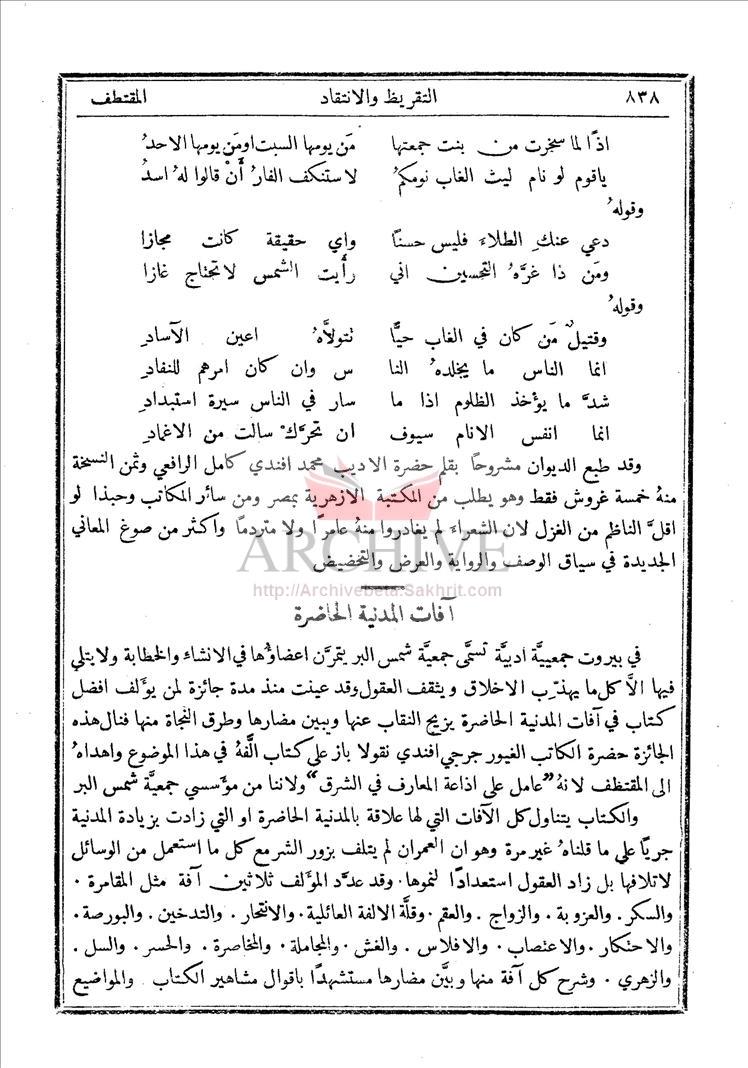 ٨٣٨ التقريظ والانتقاد المقتطف
اذًا لما سخرت من بنت جمعتها من يومها السبت اومن يومها الاحدُ
ياقوم لو نام ليث الغاب نومكمُ لاستنكف الفارُ أَنْ قالوا لهُ اسدُ
وقولهُ
دعي عنكِ الطلاءَ فليس حسنًا واي حقيقة كانت مجازا
ومَن ذا غرَّهُ التحسين اني رأَيت الشمس لاتحتاج غازا
وقولهُ
وقتيلٌ مَن كان في الغاب حيًّا تتولاَّهُ اعين الآسادِ
انما الناس ما يخلدهُ النا س وان كان امرهم للنفادِ
شدَّ ما يؤخذ الظلوم اذا ما سار في الناس سيرة استبدادِ
انما انفس الانام سيوف ان تحرَّكْ سالت من الاغمادِ
وقد طبع الديوان مشروحًا بقلم حضرة الاديب محمد افندي كامل الرافعي وثمن النسخة
منهُ خمسة غروش فقط وهو يطلب من المكتبة الازهرية بمصر ومن سائر المكاتب وحبذا لو
اقلَّ الناظم من الغزل لان الشعراءَ لم يغادروا منهُ عامرًا ولا متردمًا واكثر من صوغ المعاني
الجديدة في سياق الوصف والرواية والعرض والتحضيض
ARCHIVE
http://Archivebeta.Sakhrit.com
آفات المدنية الحاضرة
في بيروت جمعيىَّة ادبيَّة تسمَّى جمعيَّة شمس البر يتمرَّن اعضاؤُها في الانشاء والخطابة ولايتلي
فيها الاَّ كل ما يهذِّب الاخلاق ويثقف العقول وقد عينت منذ مدة جائزة لمن يؤلف افضل
كتاب في آفات المدنية الحاضرة يزيح النقاب عنها ويبين مضارها وطرق النجاة منها فنال هذه
الجائزة حضرة الكاتب الغيور جرجي افندي نقولا باز على كتاب الَّفهُ في هذا الموضوع واهداهُ
الى المقتطف لانهُ "عامل على اذاعة المعارف في الشرق" ولاننا من مؤسسي جمعيَّة شمس البر
والكتاب يتناول كل الآفات التي لها علاقة بالمدنية الحاضرة او التي زادت بزيادة المدنية
جريًا على ما قلناهُ غير مرة وهو ان العمران لم يتلف بزور الشر مع كل ما استعمل من الوسائل
لاتلافها بل زاد العقول استعدادًا لنموها. وقد عدَّد المؤلف ثلاثين آفة مثل المقامرة .
والسكر . والعزوبة . والزواج . والعقم . وقلَّة الالفة العائلية . والانتحار . والتدخين . والبورصة .
والاحتكار . والاعتصاب . والافلاس . والغش . والمجاملة . والمخاصرة . والحسر . والسل .
والزهري . وشرح كل آفة منها وبيَّن مضارها مستشهدًا باقوال مشاهير الكتاب والمواضيع